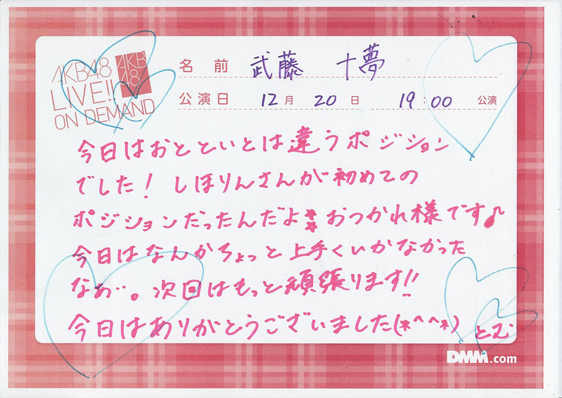 AKB48
LIVE!!
ON DEMAND
AKB
48
名前 武藤 十夢
公演日 12月 20日 19:00 公演
今日はおとといとは違うポジション
でした！しほりんさんが初めての
ポジションだったんだよ** おつかれ様です♪
今日はなんかちょっと上手くいかなかった
なあ…。次回はもっと頑張ります!!
今日はありがとうございました(*^^*) とむ
DMM.com